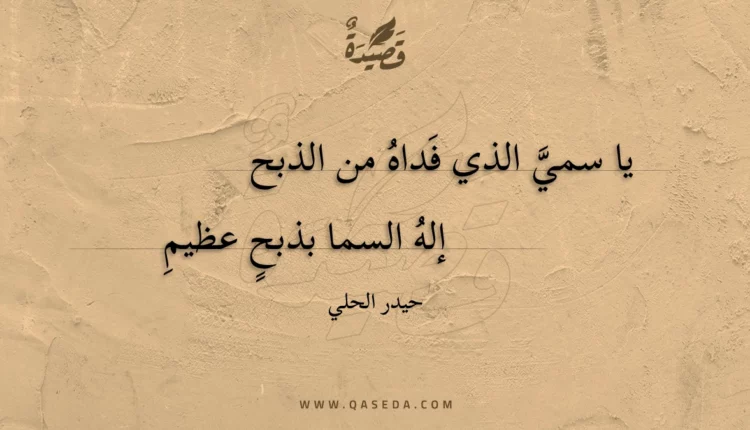 قَصِيْدَةٌ
يا سميَّ الذي فَداهُ من الذبح
إلهُ السما بذبحٍ عظيمِ
حيدر الحلي
WWW.QASEDA.COM